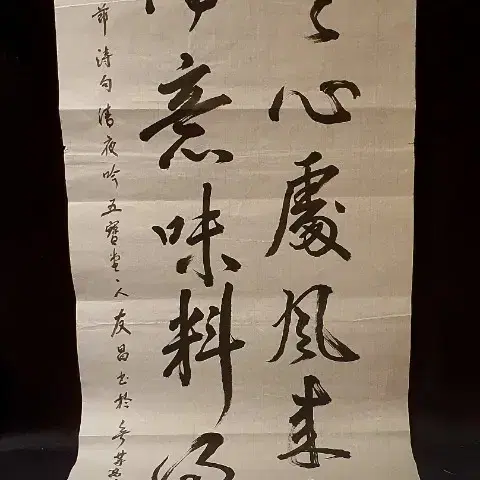 心處風來
意味料得
節詩句清夜吟五寶堂主人友昌書於